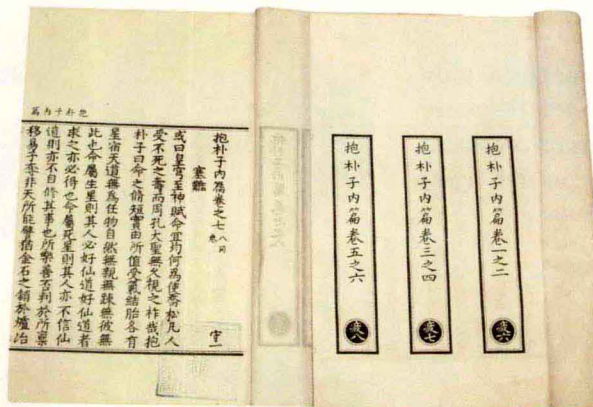 抱朴子内篇卷一之二
疲六
抱朴子内篇卷三之四
疲七
抱朴子内篇卷五之六
疲八
抱朴子内篇卷之七 八同卷
守一
塞難
或曰皇穹至神賦命宜均何爲使喬松凡人
受不死之壽而周孔大聖無久視之祚哉抱
朴子曰命之脩短實由所值受氣結胎各有
星宿天道無爲任物自然無親無疎無彼無
此也命屬生星則其人必好仙道好仙道者
求之亦必得也命屬死星則其人亦不信仙
道則亦不自修其事也所樂善否判於所禀
移易予奪非天所能譬猶金石之銷於爐冶
抱朴子内篇